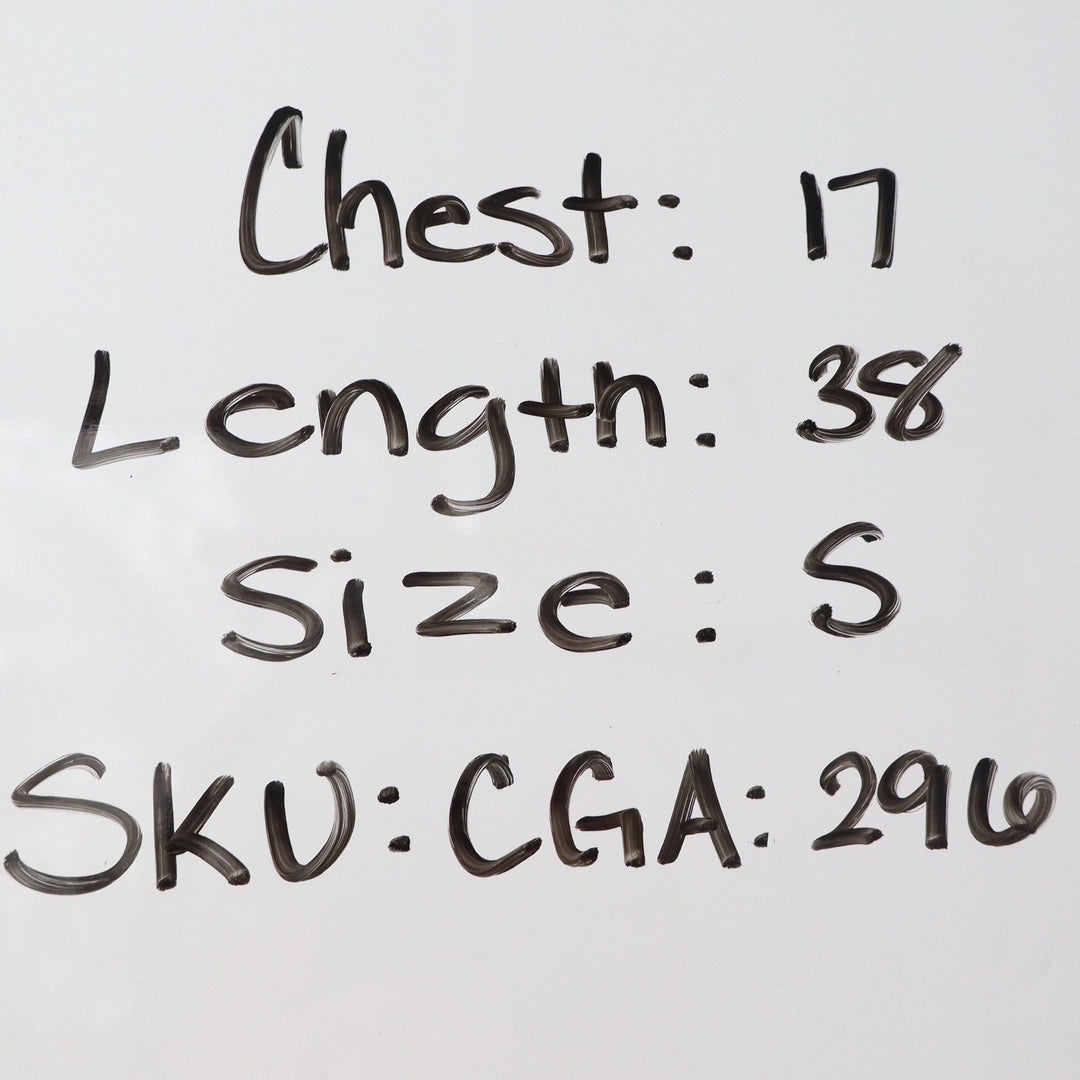 Chest: 17
Length: 38
Size: S
SKU: CGA: 296